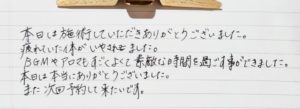 本日は施術していただきありがとうございました。
疲れていた体がいやされました。
BGMやアロマもすごくよくて素敵なお時間を過ごす事ができました。
本日は本当にありがとうございました。
また次回予約して来たいです。